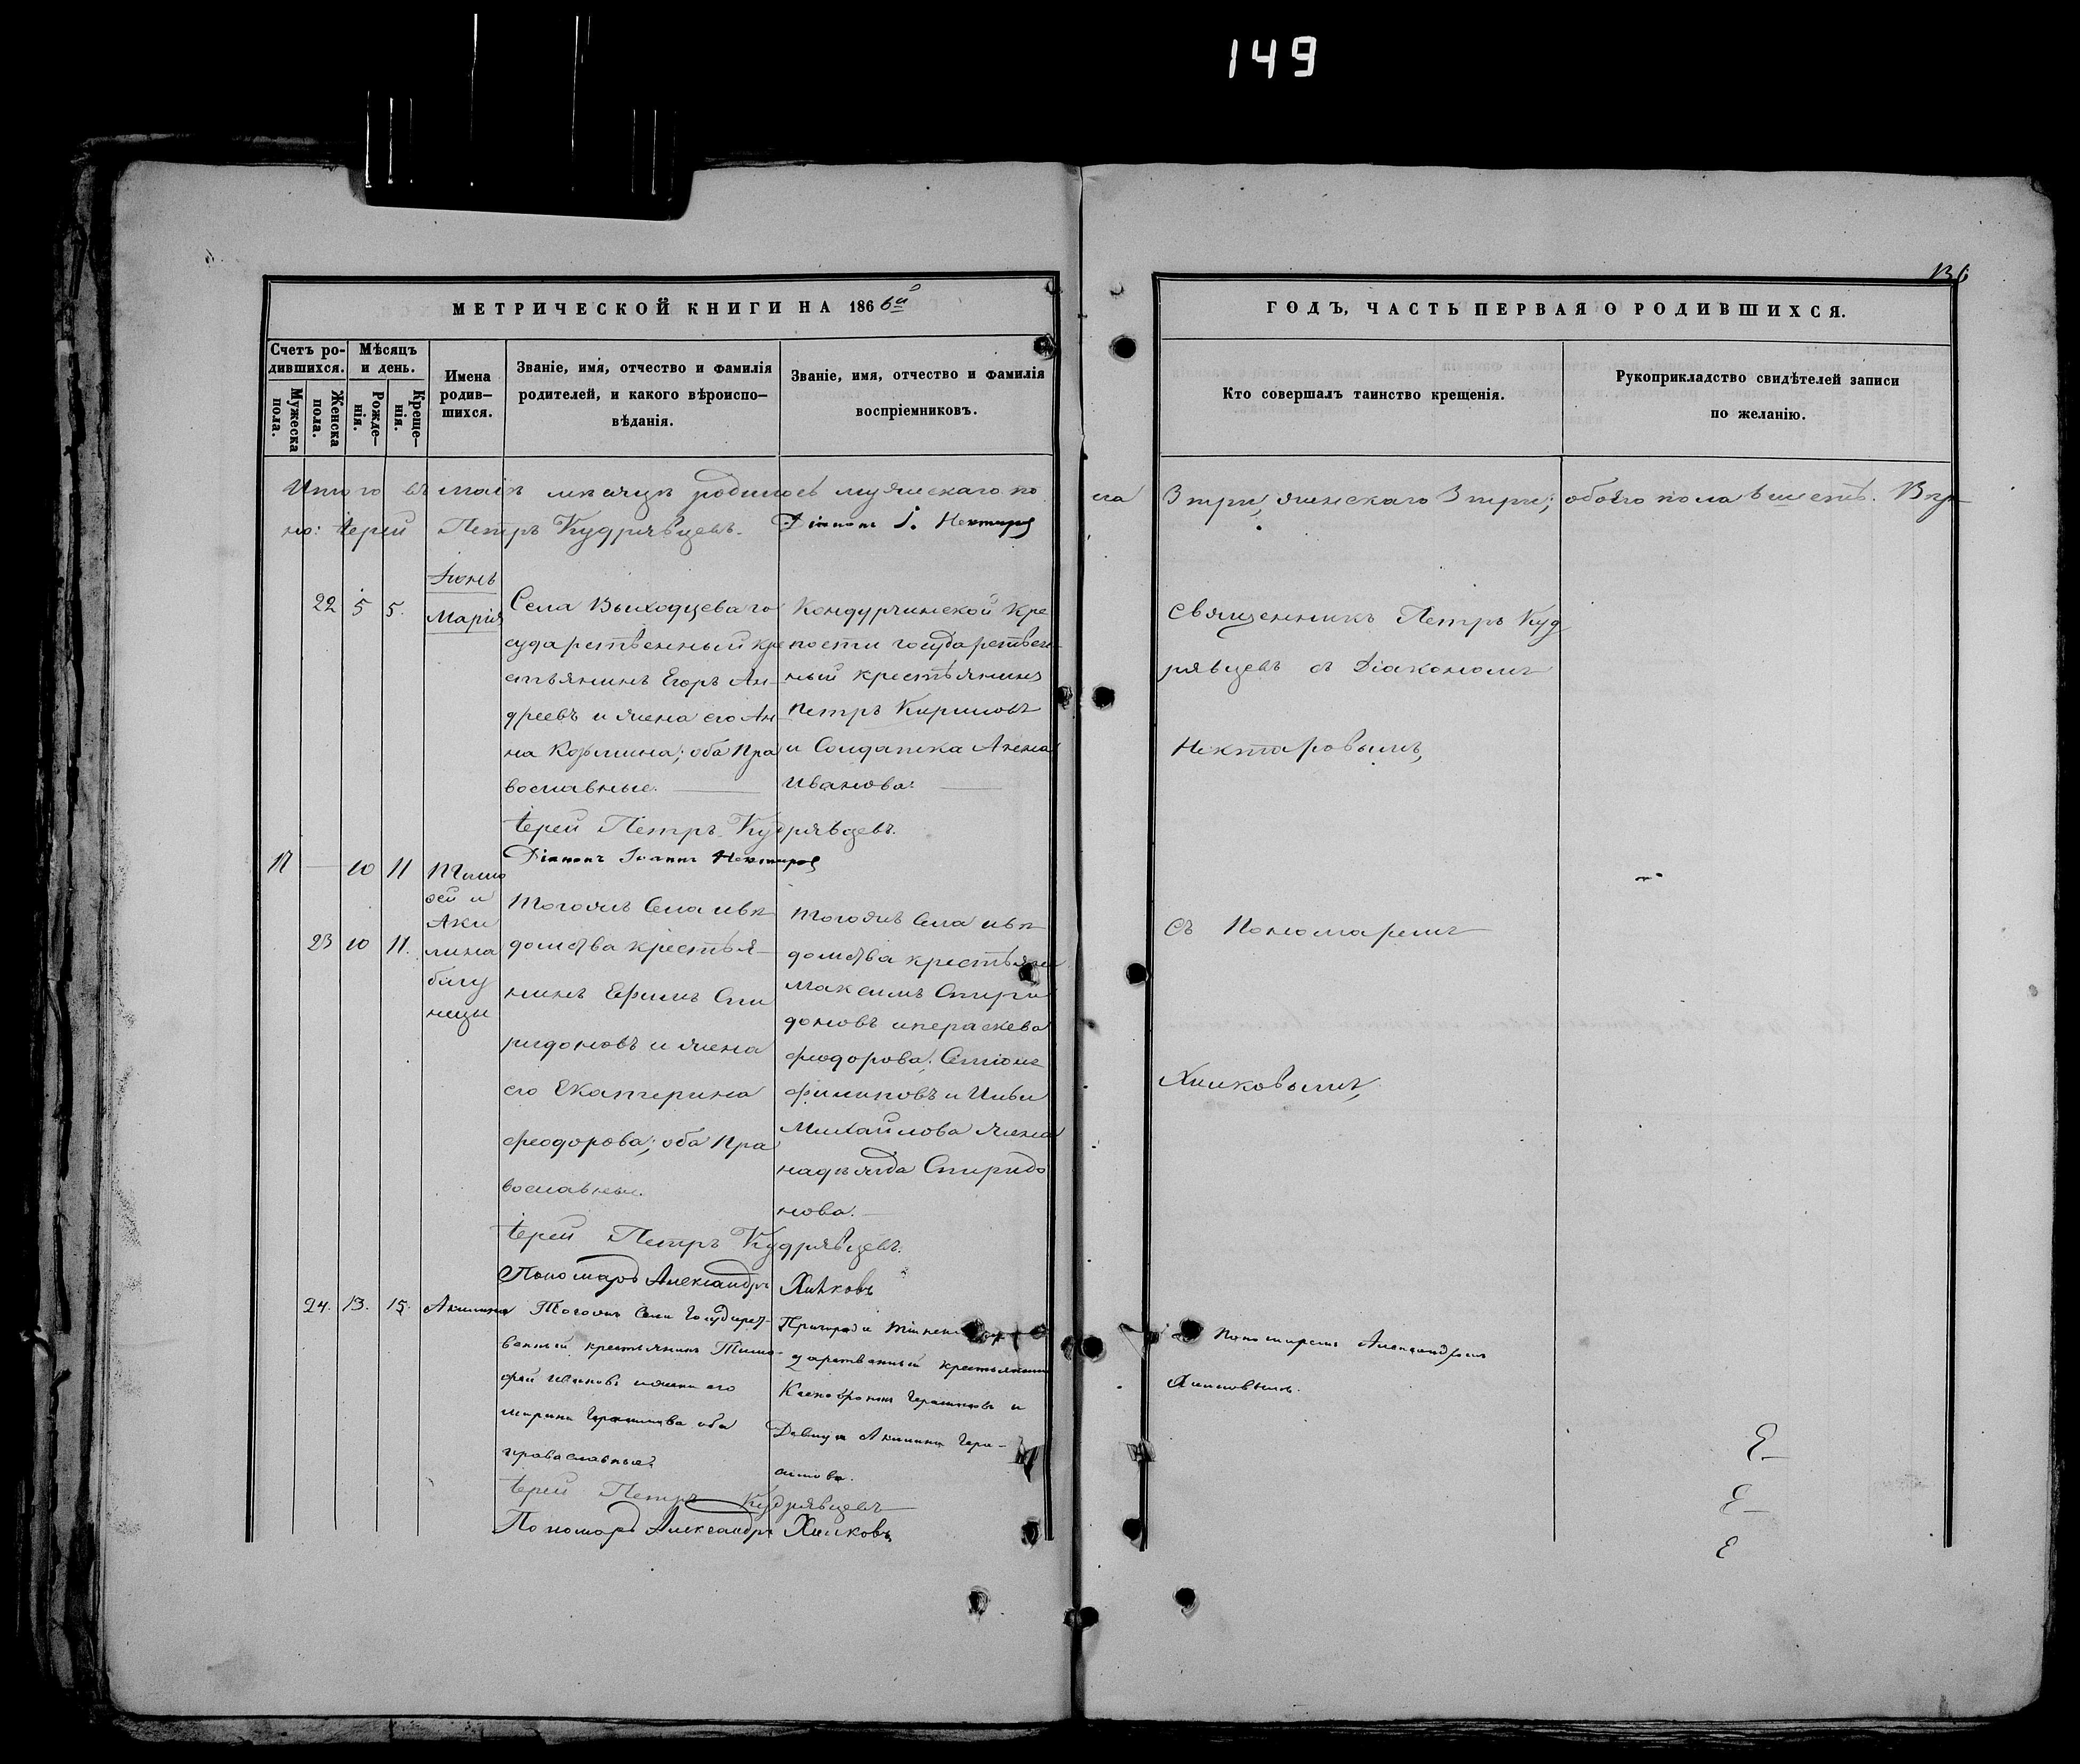 149
136
МЕТРИЧЕСКОЙ КНИГИ НА 1866й
ГОДЪ, ЧАСТЬ ПЕРВАЯ О РОДИВШИХСЯ.
Счетъ ро-
дившихся.
Мужеска
пола.
Женска
пола.
Мѣсяцъ
и день.
Рожде-
нія.
Креще-
нія.
Имена
родив-
шихся.
Званіе, имя, отчество и фамилія
родителей, и какого вѣроиспо-
вѣданія.
Званіе, имя, отчество и фамилія
воспріемниковъ.
Кто совершалъ таинство крещенія.
Рукоприкладство свидѣтелей записи
по желанію.
Итого въ маіѣ мѣсяцѣ родилось мужескаго по
ла 3 три, женскаго 3 три; обоего пола 6 шесть. Вѣр
но: Іерей Петръ Кудрявцевъ. Діаконъ І. Нектаровъ
Іюнь
22 5 5.
Марія
Села Выходцева го
сударственный кре
стьянинъ Егоръ Ан-
дреевъ и жена его Ан-
на Козьмина; оба Пра
вославные.
Кондурчинской Кре
пости государствен-
ный крестьянинъ
Петръ Кириловъ
и Солдатка Алена
Иванова.
Священникъ Петръ Куд
рявцевъ съ Діакономъ
Нектаровымъ,
Іерей Петръ Кудрявцевъ.
Діаконъ Іоаннъ Нектаровъ
17 — 10 11
23 10 11.
Тимо
фей и
Аки
лина
близ
нецы
Тогожъ Села и вѣ
домства крестья-
нинъ Ефимъ Спи
ридоновъ и жена
его Екатерина
Феодорова; оба Пра
вославные.
Тогожъ Села и вѣ
домства крестьяне
Максимъ Спири
доновъ и Параскева
Феодорова;
Филиповъ и
Михайлова жена
Спиридо
нова.
съ Пономаремъ
Хилковымъ,
Іерей Петръ Кудрявцевъ.
Пономарь Александръ Хилковъ
24. 13. 15. Акилина
Тогожъ Села Государст-
венный крестьянинъ Тимо-
фей Ивановъ и жена его
Марина Герасимова оба
православные
дарственный крестьянинъ
Герасимовъ и
Девица Акилина Гера-
симова.
съ Пономаремъ Александромъ
Хилковымъ.
Іерей Петръ Кудрявцевъ
Пономарь Александръ Хилковъ